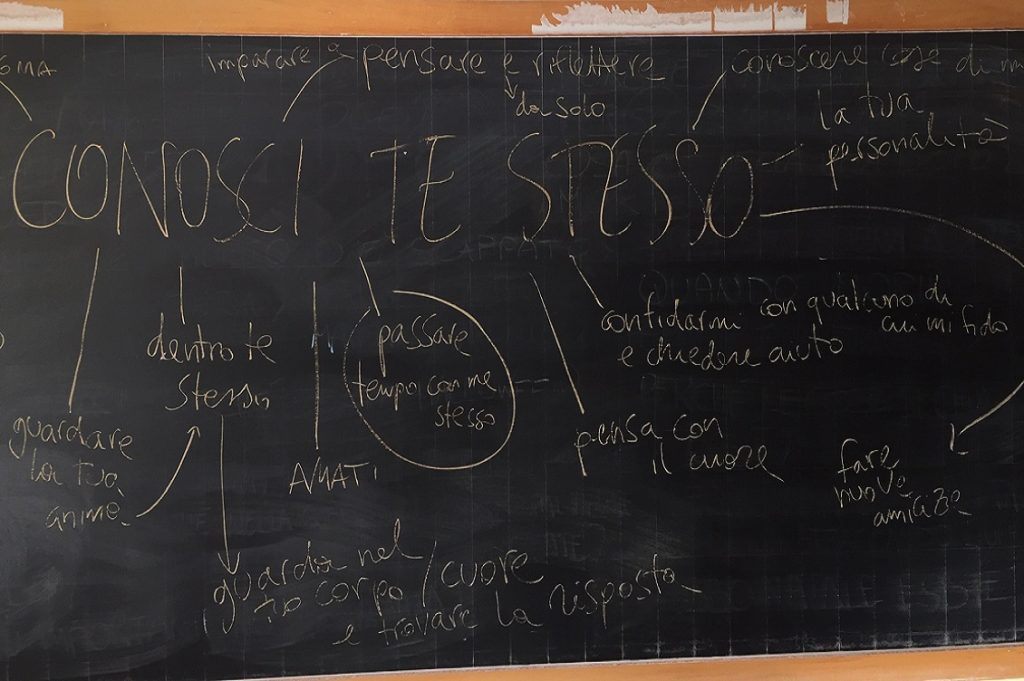 imparare a pensare e riflettere
da solo
conoscere cose di
la tua
personalità
CONOSCI TE STESSO
dentro te
stesso
passare
tempo con me
stesso
confidarmi con qualcuno di
cui mi fido
e chiedere aiuto
guardare
la tua
anima
AMATI
pensa con
il cuore
fare
nuove
amicize
guarda nel
tuo corpo / cuore
e trovare la risposta